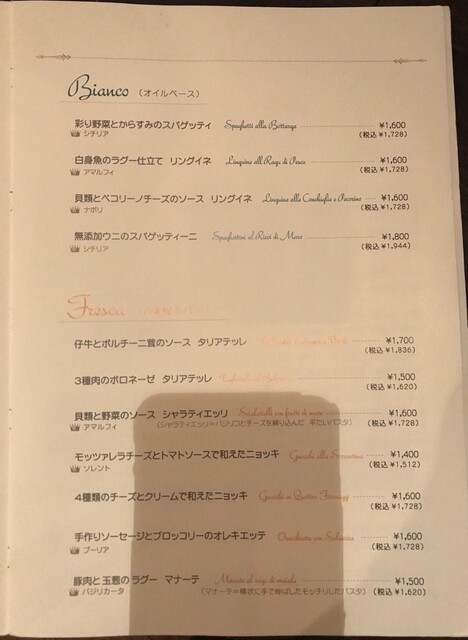 Bianco （オイルベース）
彩り野菜とからすみのスパゲッティ Spaghetti alla Bottarga ¥1,600
シチリア (税込 ¥1,728)
白身魚のラグー仕立て リングイネ Linguine all Ragu di Pesce ¥1,600
アマルフィ (税込 ¥1,728)
貝類とペコリーノチーズのソース リングイネ Linguine alla Conchiglia e Pecorino ¥1,600
ナポリ (税込 ¥1,728)
無添加ウニのスパゲッティーニ Spaghettini al Ricci di Mare ¥1,800
シチリア (税込 ¥1,944)
Fresca
仔牛とポルチーニ茸のソース タリアテッレ ¥1,700
(税込 ¥1,836)
3種肉のボロネーゼ タリアテッレ ¥1,500
(税込 ¥1,620)
貝類と野菜のソース シャラティエッリ Scialatelli con frutti di mare ¥1,600
アマルフィ (シャラティエッリ=バジリコとチーズを練り込んだ 平たいパスタ) (税込 ¥1,728)
モッツァレラチーズとトマトソースで和えたニョッキ Gnocchi alla Sorrentina ¥1,400
ソレント (税込 ¥1,512)
4種類のチーズとクリームで和えたニョッキ Gnocchi ai Quattro Formaggi ¥1,600
(税込 ¥1,728)
手作りソーセージとブロッコリーのオレキエッテ Orecchiette con Salsiccia ¥1,600
プーリア (税込 ¥1,728)
豚肉と玉葱のラグー マナーテ Manate al ragu di maiale ¥1,500
バジリカータ (マナーテ=棒状に手で伸ばしたモッチリしたパスタ) (税込 ¥1,620)